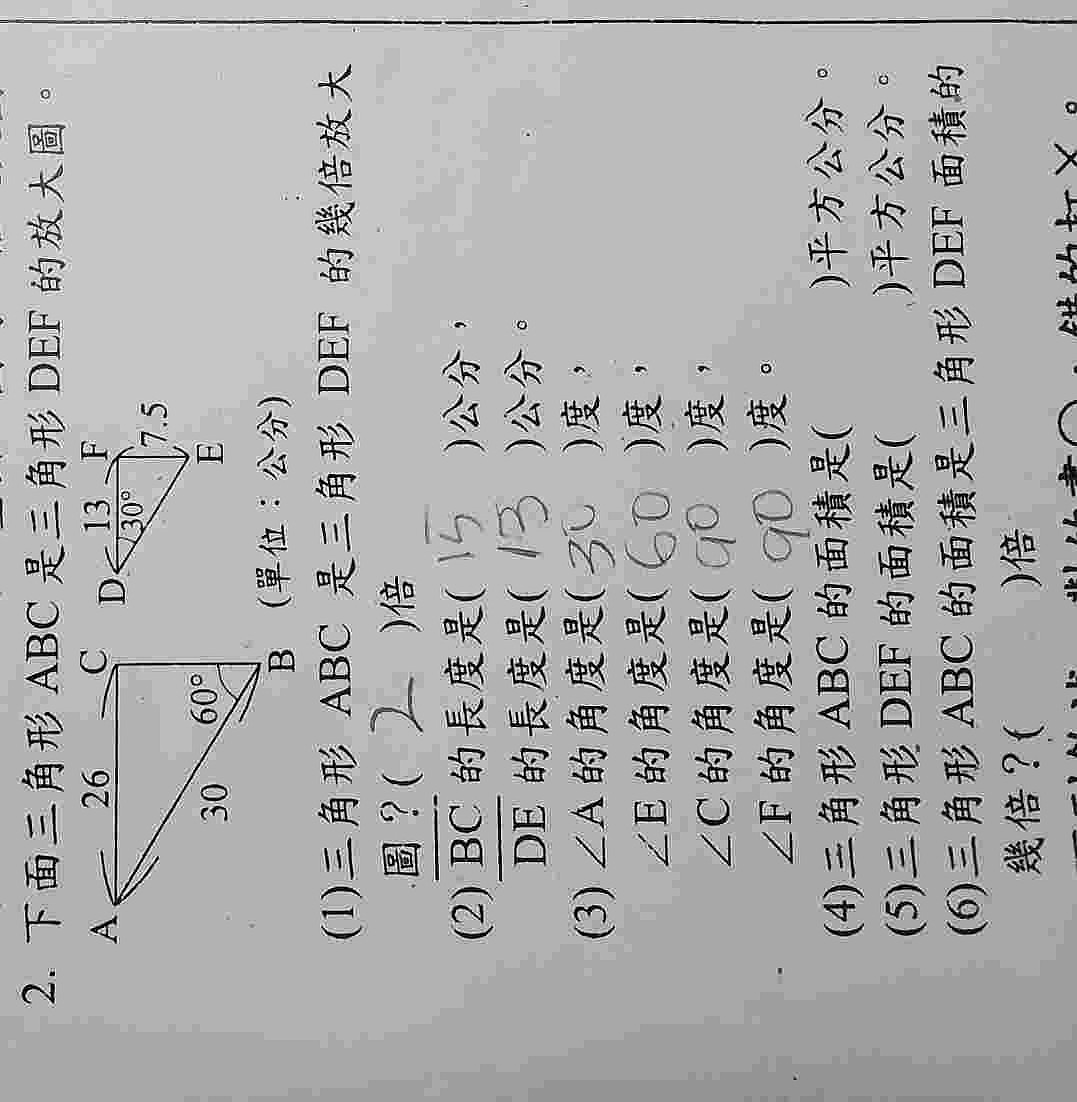 2. 下面三角形 ABC 是三角形 DEF 的放大圖。
A 26 C
30 60° B
D 13 F
30° 7.5
E
(單位：公分)
(1)三角形 ABC 是三角形 DEF 的幾倍放大
圖？( 2 )倍
(2) BC 的長度是( 15 )公分，
DE 的長度是( 13 )公分。
(3) ∠A 的角度是( 30 )度，
∠E 的角度是( 60 )度，
∠C 的角度是( 90 )度，
∠F 的角度是( 90 )度。
(4)三角形 ABC 的面積是( )平方公分。
(5)三角形 DEF 的面積是( )平方公分。
(6)三角形 ABC 的面積是三角形 DEF 面積的
幾倍？( )倍